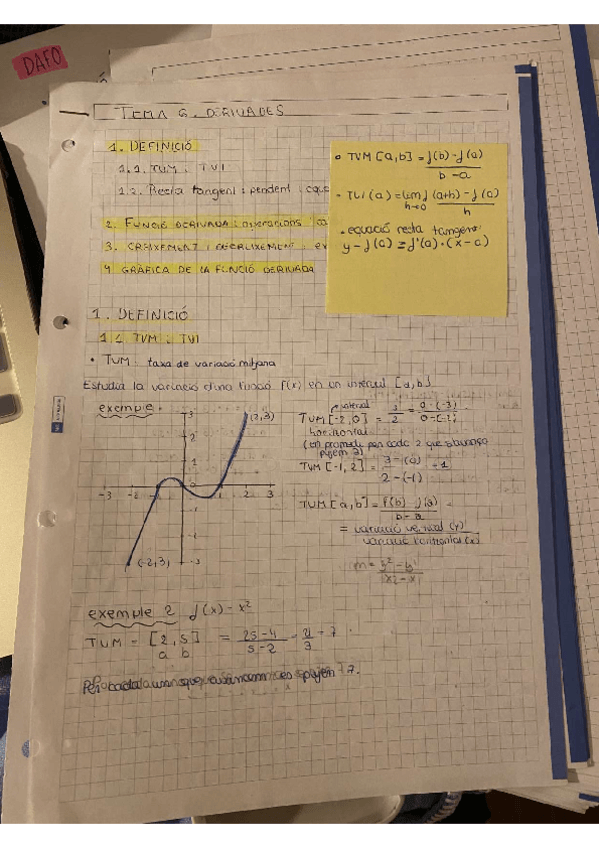 DAFO
TEMA 6. DERIVADES
1. DEFINICIÓ
1.1. TVM i TVI
1.2. Recta tangent i pendent i equa
2. FUNCIÓ DERIVADA i operacions
3. CREIXEMENT i DECREIXEMENT i ex
4 GRÀFICA DE LA FUNCIÓ DERIVADA
• TVM [a,b] = f(b)-f(a) / b-a
• TVI (a) = lim h→0 f(a+h) - f(a) / h
• equació recta tangent
y - f(a) = f'(a) · (x-a)
1. DEFINICIÓ
1.1 TVM i TVI
• TVM: taxa de variació mitjana
Estudia la variació d'una funció f(x) en un interval [a,b]
exemple:
(2,3)
3
2
-3 -2 -1 0 1 2 3
-1
-3
(-2,3)
TVM [-2,0] = 3/2 = 0-(-3) / 0-(-2)
horitzontal
TVM [-1, 2] = 3-(0) / 2-(-1) = 1
TVM [a,b] = f(b) - f(a) / b-a =
= variació vertical (y) / variació horitzontal (x)
exemple 2 f(x) = x²
TVM = [2,5] = 25-4 / 5-2 = 21/3 = 7
a b